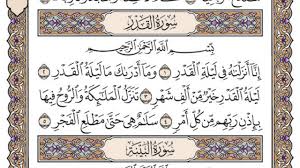 سُورَةُ الْقَدْرِ
بِسْمِ اللَّهِ الرَّحْمَٰنِ الرَّحِيمِ
إِنَّا أَنزَلْنَاهُ فِي لَيْلَةِ الْقَدْرِ ١ وَمَا أَدْرَاكَ مَا لَيْلَةُ الْقَدْرِ ٢
لَيْلَةُ الْقَدْرِ خَيْرٌ مِّنْ أَلْفِ شَهْرٍ ٣ تَنَزَّلُ الْمَلَائِكَةُ وَالرُّوحُ فِيهَا
بِإِذْنِ رَبِّهِم مِّن كُلِّ أَمْرٍ ٤ سَلَامٌ هِيَ حَتَّىٰ مَطْلَعِ الْفَجْرِ ٥
سُورَةُ الْبَيِّنَةِ